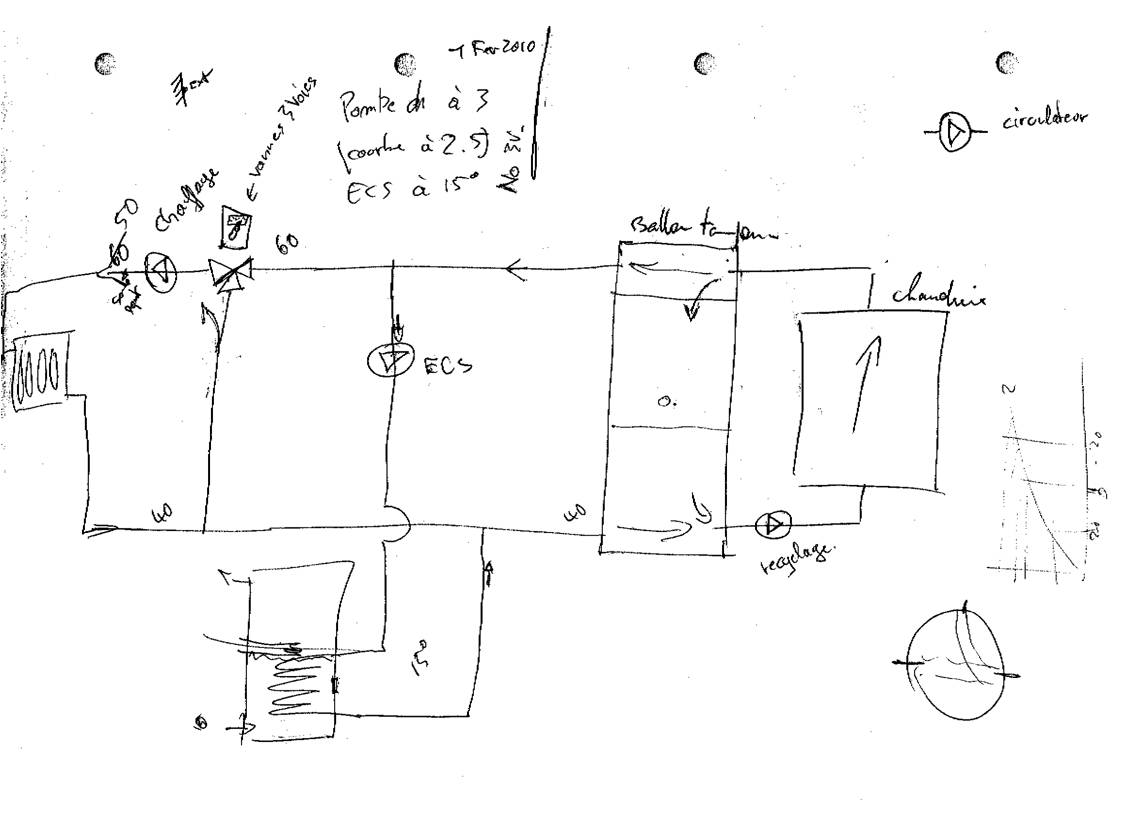 1 Fev 2010
Pompe ch à 3
(courbe à 2.5)
ECS à 15°
No 3V.
circulateur
vannes 3 voies
chauffage
50
60
60
Ballon tampon
chaudière
ECS
0.
40
40
recyclage.
15°
2
-20
20